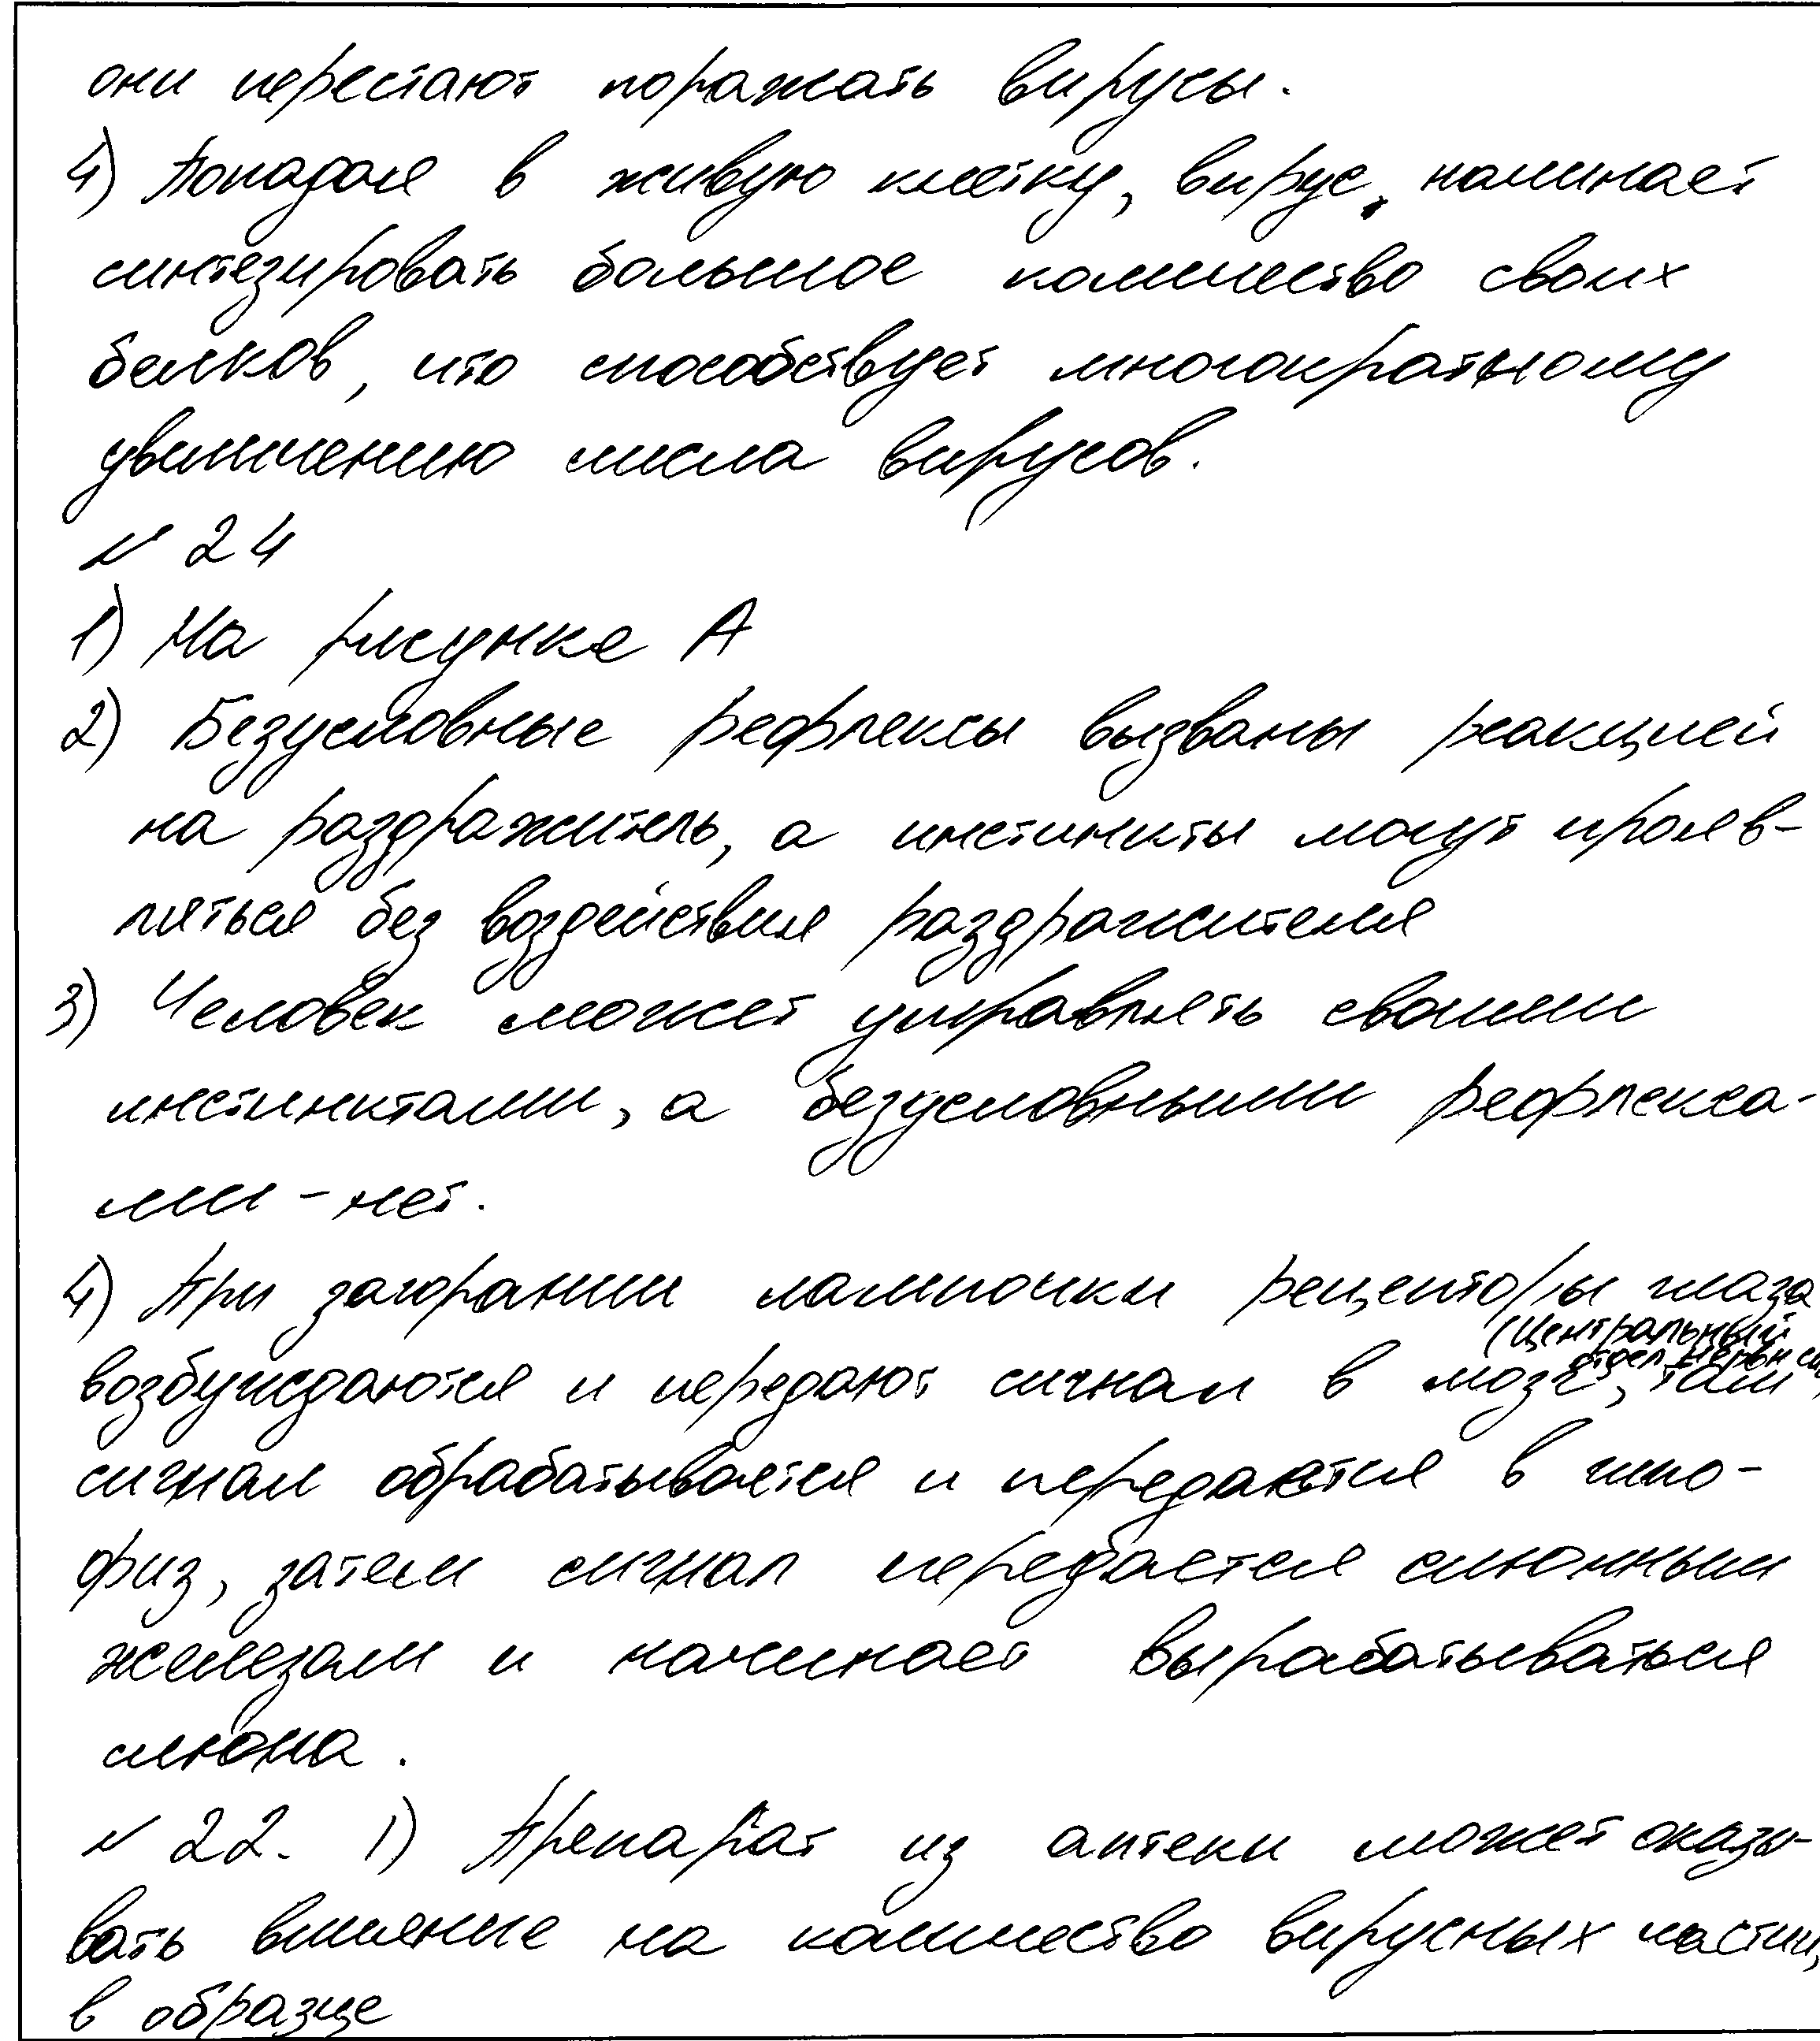 они перестают поражать вирусы.
4) Попадая в живую клетку, вирус, начинает
синтезировать большое количество своих
белков, что способствует многократному
увеличению числа вирусов.
№ 24
1) На рисунке А
2) Безусловные рефлексы вызваны реакцией
на раздражитель, а инстинкты могут прояв-
ляться без воздействия раздражителя
3) Человек может управлять своими
инстинктами, а безусловными рефлекса-
ми - нет.
4) При загорании лампочки рецепторы глаза
(Центральный
отдел нервн си
возбуждаются и передают сигнал в мозг, там
сигнал обрабатывается и передается в гипо-
физ, затем сигнал передается слюнным
железам и начинает вырабатываться
слюна.
№ 22. 1) Препарат из аптеки может оказы-
вать влияние на количество вирусных частиц
в образце